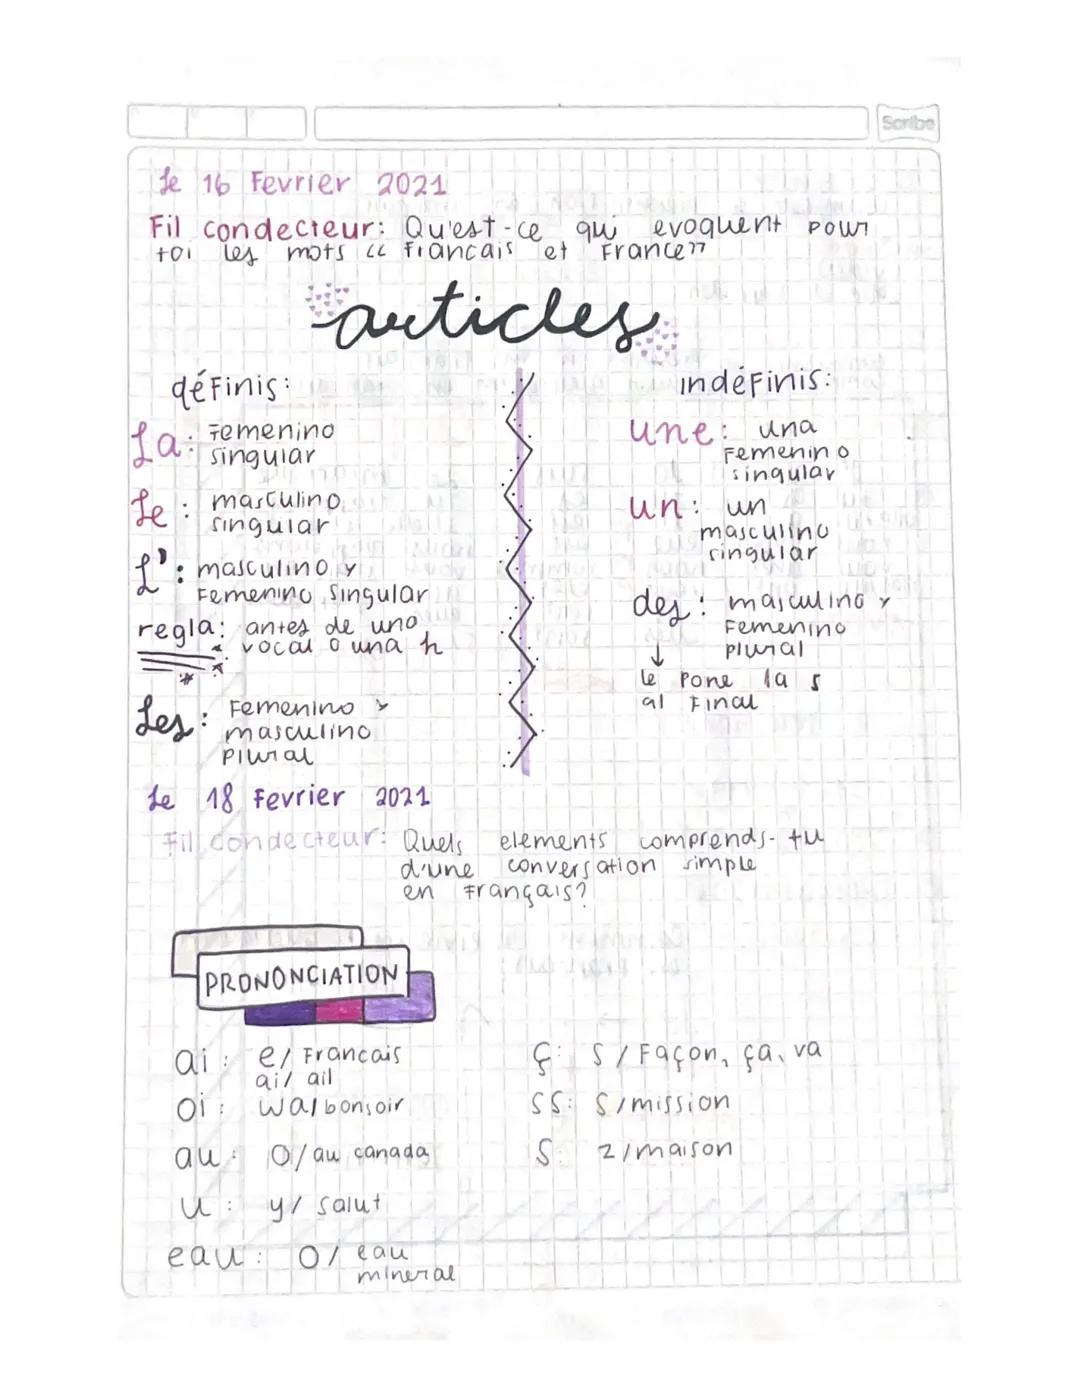 Scribe
Le 16 Fevrier 2021
Fil condecteur: Qu'est-ce qui evoquent pour
toi les mots “ francais et France”
articles
définis:
La: Femenino
singular
Le: masculino
singular
L': masculino y
Femenino singular
regla: antes de una
vocal o una h
Les: Femenino y
masculino
plural
indéfinis:
une: una
Femenino
singular
un: un
masculino
singular
des: masculino y
Femenino
plural
↓
le pone la s
al Final
Le 18 Fevrier 2021
Fil condecteur: Quels elements comprends-tu
d'une conversation simple
en Français?
PRONONCIATION
ai: e/ Francais
ai/ ail
oi: wa/bonsoir
au: O/au canada
u: y/ salut
eau: O/ eau
mineral
ç: s/Façon, ça, va
ss: s/mission
s: z/maison